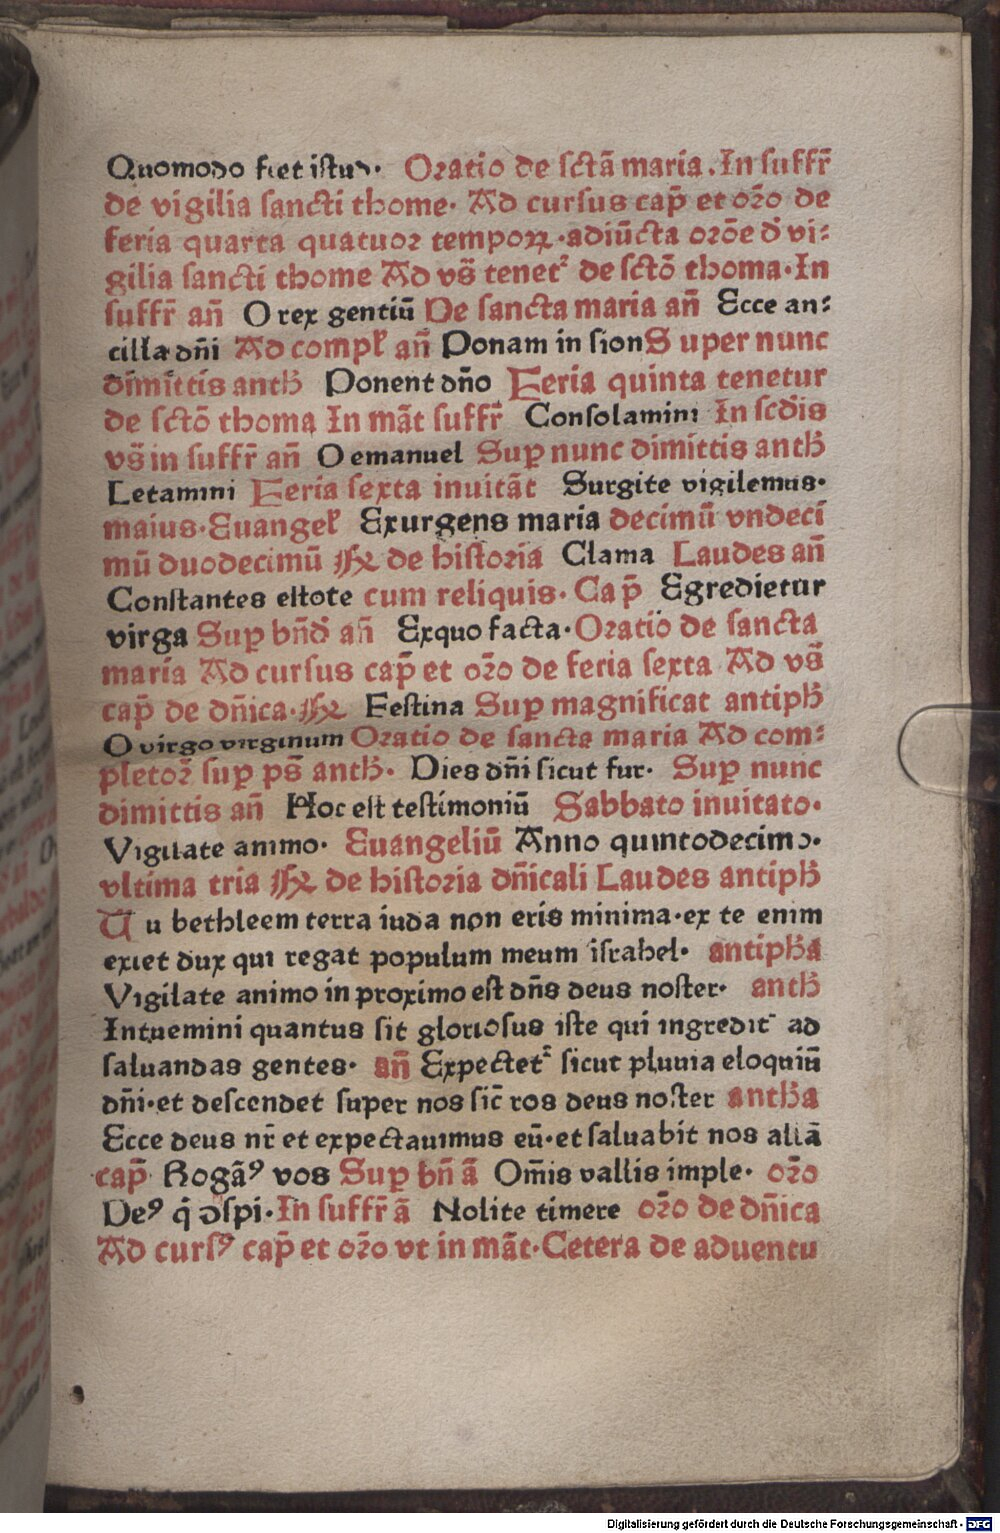 Quomodo fiet istud. Oratio de sctā maria. In suffr̄
de vigilia sancti thome. Ad cursus cap̄ et or̄o de
feria quarta quatuor temporꝝ. adiūcta orōe d̄ vi⸗
gilia sancti thome Ad vs̄ tenet᷑ de sctō thoma. In
suffr̄ an̄ O rex gentiū De sancta maria an̄ Ecce an⸗
cilla dn̄i Ad compl̄ an̄ Ponam in sion Super nunc
dimittis anth̄ Ponent dn̄o Feria quinta tenetur
de sctō thoma In māt suffr̄ Consolamini In scd̄is
vs̄ in suffr̄ an̄ O emanuel Suꝑ nunc dimittis anth̄
Letamini Feria sexta inuitāt Surgite vigilemus.
maius. Euangel̄ Exurgens maria decimū vndeci
mū duodecimū ℟ de historia Clama Laudes an̄
Constantes estote cum reliquis. Cap̄ Egredietur
virga Suꝑ bn̄d̄ an̄ Exquo facta. Oratio de sancta
maria Ad cursus cap̄ et or̄o de feria sexta Ad vs̄
cap̄ de dn̄ica. ℟ Festina Suꝑ magnificat antiph̄
O virgo virginum Oratio de sancta maria Ad com⸗
pletor̄ suꝑ ps̄ anth̄. Dies dn̄i sicut fur. Suꝑ nunc
dimittis an̄ Hoc est testimoniū Sabbato inuitato.
Vigilate animo. Euangeliū Anno quintodecimo.
vltima tria ℟ de historia dn̄icali Laudes antiph̄
Tu bethleem terra iuda non eris minima. ex te enim
exiet dux qui regat populum meum israhel. antiph̄a
Vigilate animo in proximo est dn̄s deus noster. anth̄
Intuemini quantus sit gloriosus iste qui ingredit᷑ ad
saluandas gentes. an̄ Expectet᷑ sicut pluuia eloquiū
dn̄i. et descendet super nos sic̄ ros deus noster anth̄a
Ecce deus nr̄ et expectauimus eū. et saluabit nos allā
cap̄ Rogāꝰ vos Suꝑ bn̄ ā Om̄is vallis imple. or̄o
Deꝰ q̄ ꝯspi. In suffr̄ ā Nolite timere or̄o de dn̄ica
Ad cursꝰ cap̄ et or̄o vt in māt. Cetera de aduentu
Digitalisierung gefördert durch die Deutsche Forschungsgemeinschaft - DFG